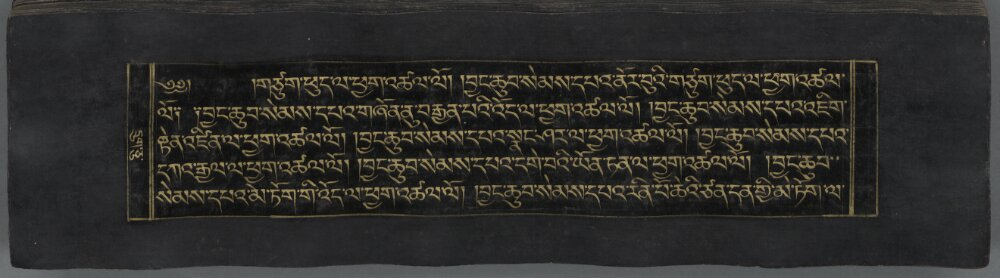 ༄༅། །གཙུག་ཕུད་ལ་ཕྱག་འཚལ་ལོ། །བྱང་ཆུབ་སེམས་དཔའ་ནོར་བུའི་གཙུག་ཕུད་ལ་ཕྱག་འཚལ་
ལོ༔ ༔བྱང་ཆུབ་སེམས་དཔའ་གཞོན་ནུ་བརྒྱན་པའི་འོད་ལ་ཕྱག་འཚལ་ལོ། །བྱང་ཆུབ་སེམས་དཔའ་འཇིག་
རྟེན་འཛིན་ལ་ཕྱག་འཚལ་ལོ། །བྱང་ཆུབ་སེམས་དཔའ་སྣང་ཤར་ལ་ཕྱག་འཚལ་ལོ། །བྱང་ཆུབ་སེམས་དཔའ་
དཀའ་རྒྱལ་ལ་ཕྱག་འཚལ་ལོ། །བྱང་ཆུབ་སེམས་དཔའ་དགེ་བའི་ཡོན་ཏན་ལ་ཕྱག་འཚལ་ལོ། །བྱང་ཆུབ༔
སེམས་དཔའ་མེ་ཏོག་གི་འོད་ལ་ཕྱག་འཚལ་ལོ། །བྱང་ཆུབ་སེམས་དཔའ་ཙན་དན་གྱི་མེ་ཏོག་ལ་